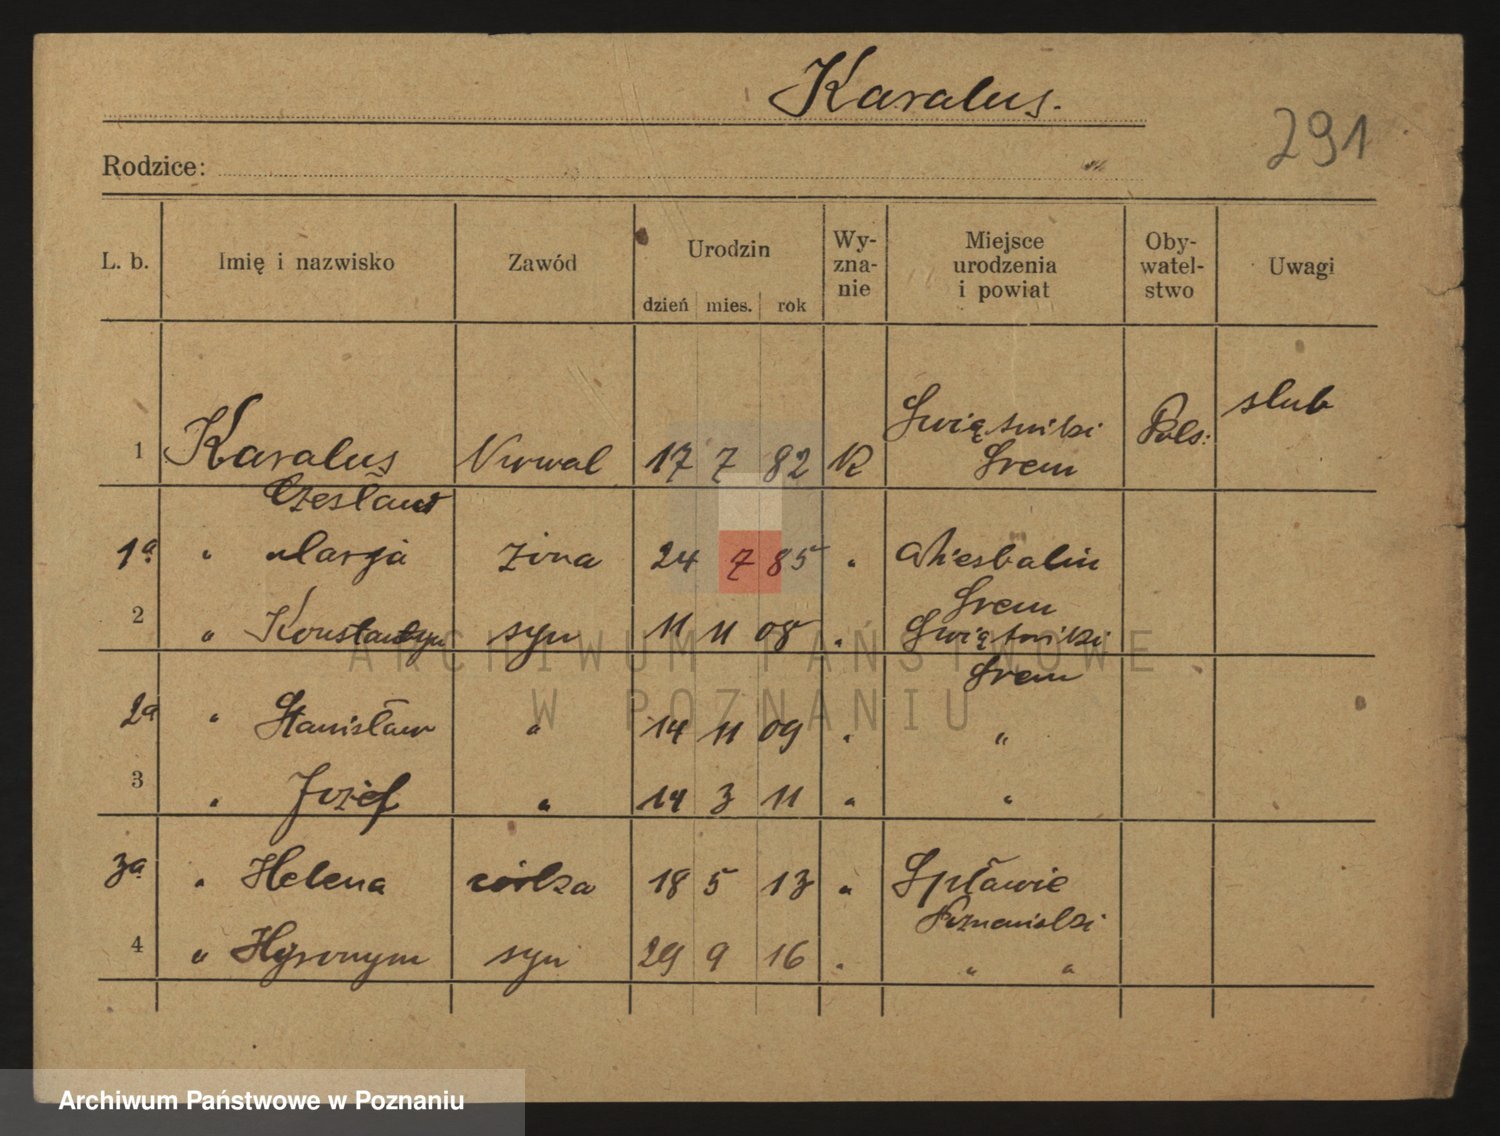 Karalus.
291
Rodzice:
L. b. Imię i nazwisko Zawód Urodzin dzień mies. rok Wy-zna-nie Miejsce urodzenia i powiat Oby-watel-stwo Uwagi
1 Karalus Czesław 17 7 82 K Świątniki Śrem Pols: slub
1a " Marja żona 24 7 85 "
Śrem
2 " Konstantyn syn 11 11 08 " Świątniki
Śrem
2a " Stanisław " 14 11 09 " "
3 " Józef " 14 3 11 " "
3a " Helena córka 18 5 13 " Spławie
Poznański
4 " Hyronym syn 29 9 16 " " "
ARCHIWUM PAŃSTWOWE
W POZNANIU
Archiwum Państwowe w Poznaniu